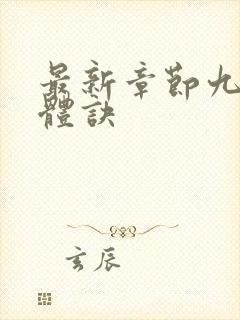 最新章節九
體訣
玄辰